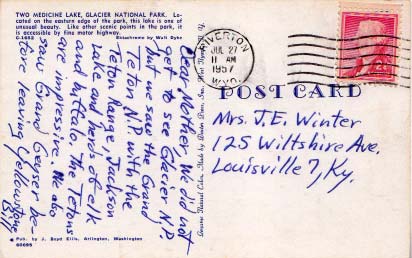 TWO MEDICINE LAKE, GLACIER NATIONAL PARK. Lo-
cated on the eastern edge of the park, this lake is one of
unusual beauty. Like other scenic points in the park, it
is accessible by fine motor highway.
G-1652 Ektachrome by Walt Dyke
Dear Mother, We did not
get to see Glacier N.P.
but we saw the Grand
Teton N.P. with the
Teton Range, Jackson
Lake and herds of elk
and buffalo. The Tetons
are impressive. We also
saw Grand Geyser be-
fore leaving Yellowstone
Bill
Pub. by J. Boyd Ellis, Arlington, Washington
60695
RIVERTON
JUL 27
11 AM
1957
WYO.
POST CARD
Mrs. J. E. Winter
125 Wiltshire Ave.
Louisville 7, Ky.